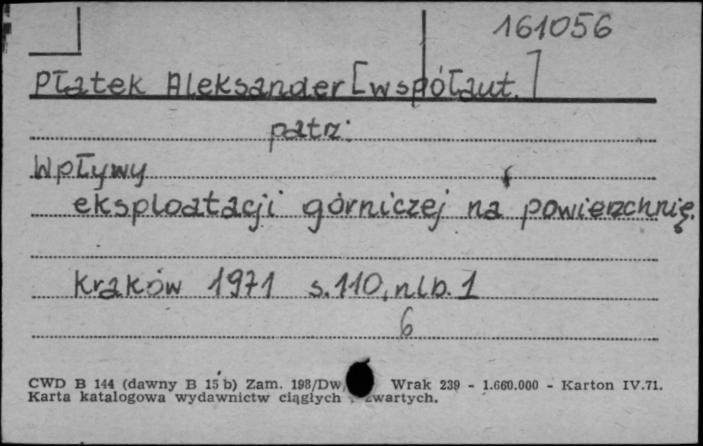 161056
Płatek Aleksander [współaut.]
patrz:
Wpływy
eksploatacji górniczej na powierzchnię.
Kraków 1971 s.110, nlb. 1
6
CWD B 144 (dawny B 15 b) Zam. 198/Dw Wrak 239 - 1.660.000 - Karton IV.71.
Karta katalogowa wydawnictw ciągłych